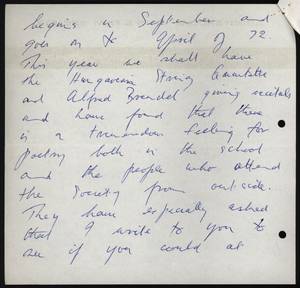 begins in September and
goes on to April of 72.
This year we shall have
the Hungarian String Quartette
and Alfred Brendel giving recitals
and have found that there
is a tremendous feeling for
poetry both in the school
and the people who attend
the Society from outside.
They have especially asked
that I write to you to
see if you could at